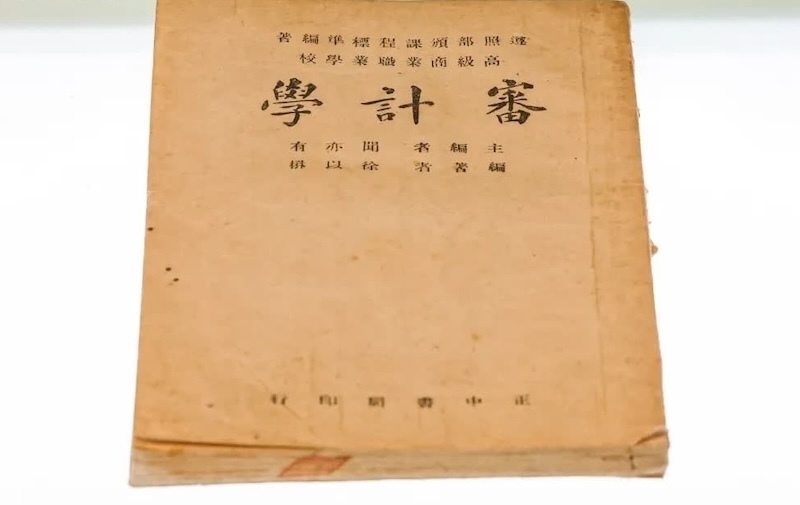 遵照部頒課程標準編著
高級商業職業學校
審計學
主編者 聞亦有
編著者 徐以楙
正中書局印行